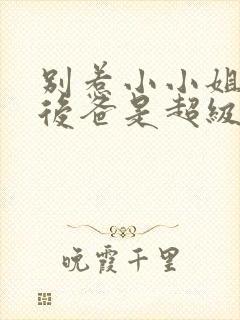 别惹小小姐
後爸是超級
晚霞千里